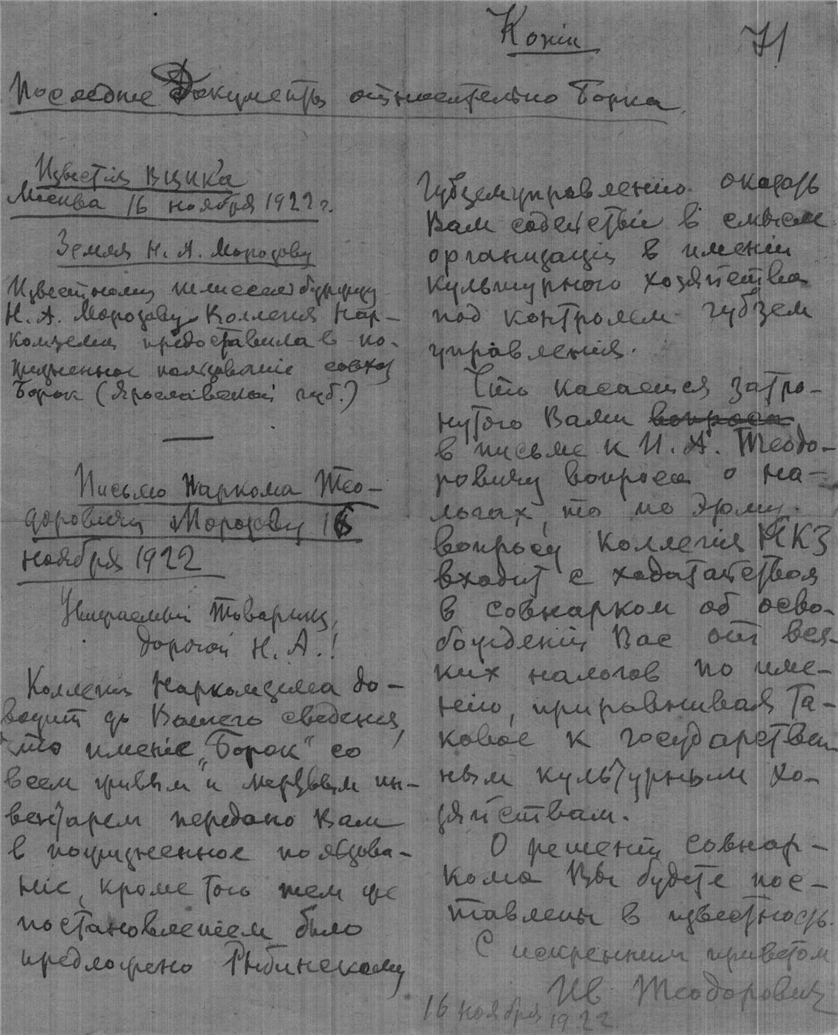 Копіи
71
Последние Документы относительно Борка.
Известія ВЦИК'а
Москва 16 ноября 1922 г.
Земля Н. А. Морозову
Известному шлиссельбуржцу
Н. А. Морозову Коллегія Нар-
комзема предоставила в по-
жизненное пользованіе совхоз
Борок (Ярославской губ.)
Письмо Наркома Тео-
доровича Морозову 16
ноября 1922
Уважаемый Товарищ,
дорогой Н. А.!
Коллегія Наркомзема до-
водит до Вашего сведенія,
что именіе „Борок" со
всем живым и мертвым ин-
вентарем передано Вам
в пожизненное пользова-
ніе, кроме того тем же
постановленіем было
предложено Рыбинскому
Губземуправленію оказать
Вам содействіе в смысле
организаціи в именіи
культурного хозяйства
под контролем губзем
управления.
Что касается затро-
нутого Вами вопроса
в письме к И. А. Теодо-
ровичу вопроса о на-
логах, то по этому
вопросу Коллегія НКЗ
входит с ходатайством
в совнарком об осво-
божденіи Вас от вся-
ких налогов по име-
нію, приравнивая та-
ковое к государствен
ным культурным хо-
зяйствам.
О решеніи совнар-
кома Вы будете пос-
тавлены в известность.
С искренним приветом
Ив Теодорович
16 ноября
1922